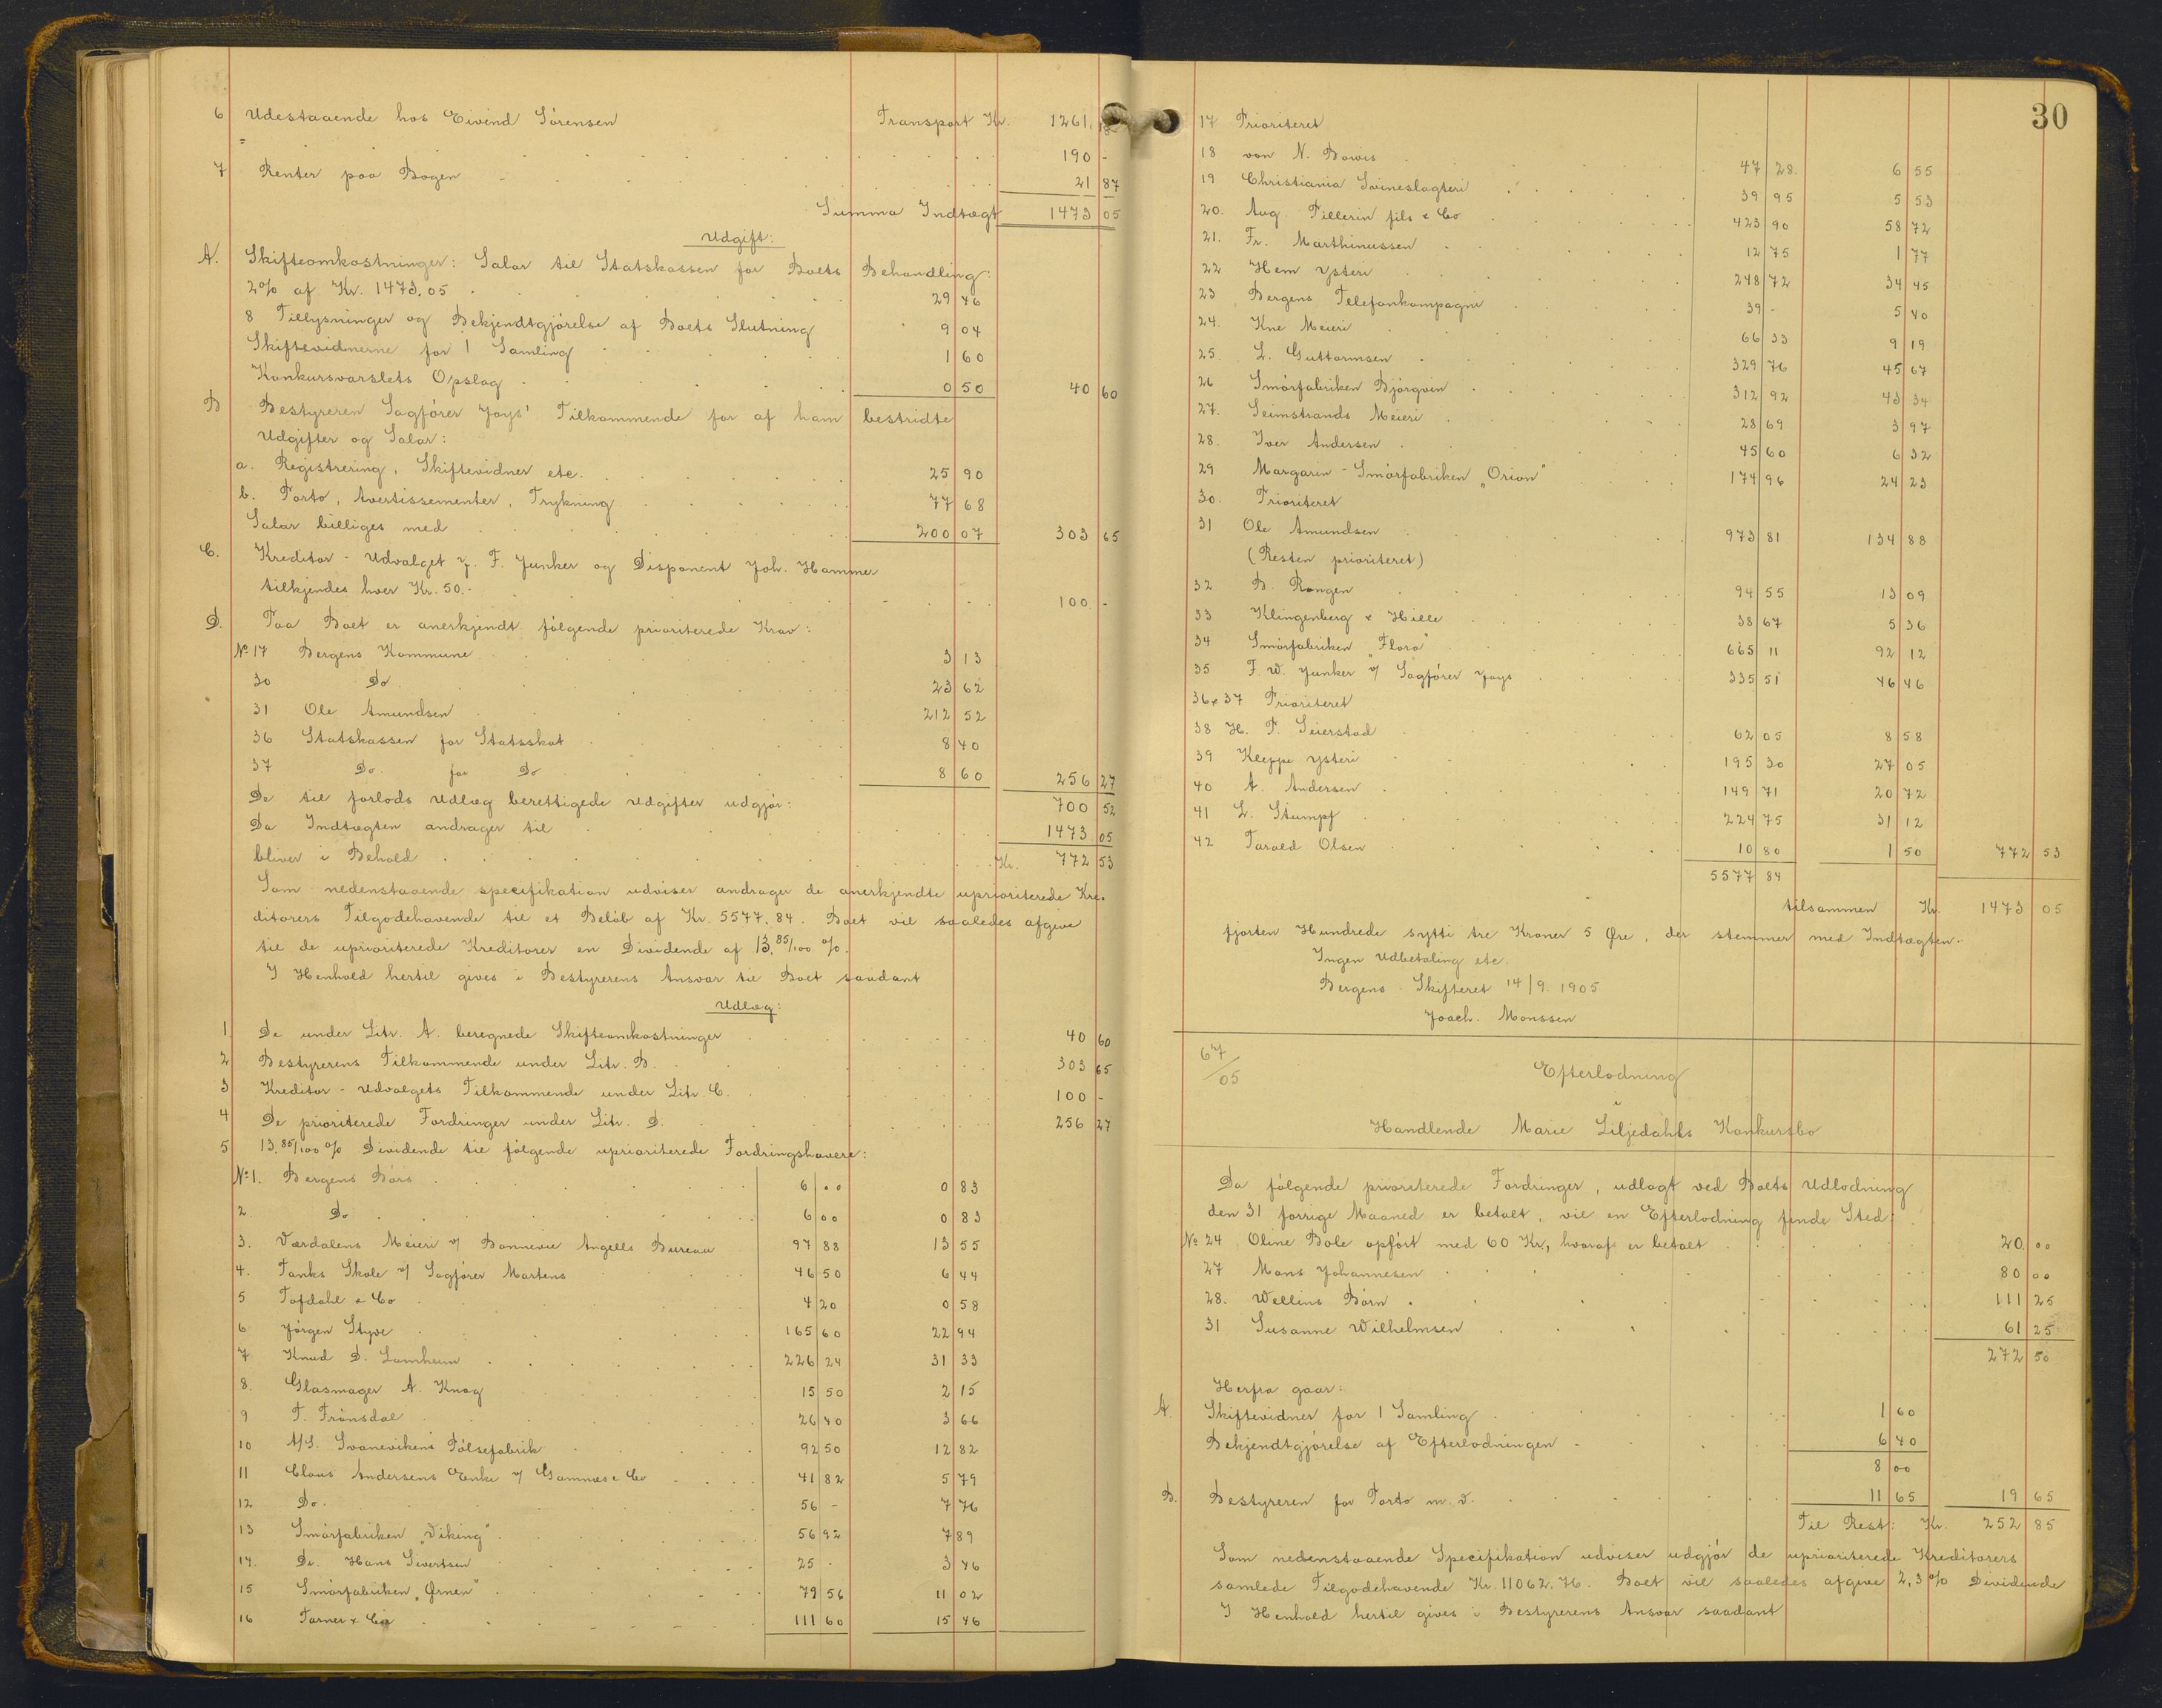 6 Udestaaende hos Eivind Sörensen Transport Kr. 1261.18
190 -
7 Renter paa Bogen 21 87
Summa Indtægt 1473 05
Udgift:
A. Skifteomkostninger: Salar til Statskassen for Boets Behandling:
2% af Kr. 1473.05 29 46
8 Tillysninger og Bekjendtgjörelse af Boets Slutning 9 04
Skiftevidnerne for 1 Samling 1 60
Konkursvarslets Opslag 0 50 40 60
B Bestyreren Sagförer Joys' Tilkommende for af ham bestridte
Udgifter og Salar:
a. Registrering, Skiftevidner etc. 25 90
b. Porto, Avertissementer, Trykning 77 68
Salar billiges med 200 07 303 65
C. Kreditor-Udvalget F. Junker og Disponent Joh. Hammer
tilkjendes hver Kr. 50.- 100 -
D. Paa Boet er anerkjendt fölgende prioriterede Krav:
No 17 Bergens Kommune 3 13
30 Do 23 62
31 Ole Amundsen 212 52
36 Statskassen for Statsskat 8 40
37 Do. for Do 8 60 256 27
De til forlods Udlæg berettigede Udgifter udgjör: 700 52
Da Indtægten andrager til 1473 05
bliver i Behold Kr. 772 53
Som nedenstaaende specifikation udviser andrager de anerkjendte uprioriterede Kre-
ditorers Tilgodehavende til et Belöb af Kr. 5577.84. Boet vil saaledes afgive
til de uprioriterede Kreditorer en Dividende af 13,85/100 %.
I Henhold hertil gives i Bestyrerens Ansvar til Boet saadant
Udlæg:
1. De under Litr. A. beregnede Skifteomkostninger 40 60
2 Bestyrerens Tilkommende under Litr. B. 303 65
3 Kreditor-Udvalgets Tilkommende under Litr C. 100 -
4 De prioriterede Fordringer under Litr. D. 256 27
5 13,85/100 % Dividende til fölgende uprioriterede Fordringshavere:
No 1. Bergens Börs 6 00 0 83
2. Do 6 00 0 83
3. Værdalens Meieri v/ Bonnevie Angells Bureau 97 88 13 55
4. Tanks Skole v/ Sagförer Martens 46 50 6 44
5 Tofdahl & Co 4 20 0 58
6 Jörgen Styve 165 60 22 94
7 Knud D. Lamheim 226 24 31 33
8. Glasmager A. Knag 15 50 2 15
9 T. Frönsdal 26 40 3 66
10 A/S. Svanevikens Pölsefabrik 92 50 12 82
11 Claus Andersens Enke v/ Gammes & Co 41 82 5 79
12 Do. 56 - 7 76
13 Smörfabriken "Viking" 56 92 7 89
14. Dr. Hans Sivertsen 25 - 3 46
15 Smörfabriken "Ørnen" 79 56 11 02
16 Farner & Cia 111 60 15 46
30
17 Prioriteret
18 von N. Bowis 47 28. 6 55
19 Christiania Svineslagteri 39 95 5 53
20. Aug. Pellerin fils & Co 423 90 58 72
21. Fr. Marthinussen 12 75 1 77
22 Hem Ysteri 248 72 34 45
23 Bergens Telefonkompagni 39 - 5 40
24. Kne Meieri 66 33 9 19
25. L. Guttormsen 329 76 45 67
26 Smörfabriken Björgvin 312 92 43 34
27. Seimstrands Meieri 28 69 3 97
28. Iver Andersen 45 60 6 32
29 Margarin-Smörfabriken "Orion" 174 96 24 23
30. Prioriteret
31 Ole Amundsen 973 81 134 88
(Resten prioriteret)
32 B. Rongen 94 55 13 09
33 Klingenberg & Hille 38 67 5 36
34 Smörfabriken "Flora" 665 11 92 12
35 F. W. Junker v/ Sagförer Joys 335 51 46 46
36 & 37 Prioriteret
38 H. P. Seierstad 62 05 8 58
39 Kleppe Ysteri 195 30 27 05
40 A. Andersen 149 71 20 72
41 L. Stumpf 224 75 31 12
42 Tarald Olsen 10 80 1 50 772 53
5577 84
tilsammen Kr. 1473 05
fjorten Hundrede sytti tre Kroner 5 Øre, der stemmer med Indtægten.
Ingen Udbetaling etc.
Bergens Skifteret 14/9. 1905
Joach. Monssen
67/05
Efterlodning
i
Handlende Marie Liljedahls Konkursbo
Da fölgende prioriterede Fordringer, udlagt ved Boets Udlodning
den 31 forrige Maaned er betalt, vil en Efterlodning finde Sted:
No 24 Oline Bole opfört med 60 Kr., hvoraf er betalt 20 00
27 Mons Johannesen 80 00
28. Wellins Börn 111 25
31 Susanne Wilhelmsen 61 25
272 50
Herfra gaar:
A. Skiftevidner for 1 Samling 1 60
Bekjendtgjörelse af Efterlodningen 6 40
8 00
B. Bestyreren for Porto m. v. 11 65 19 65
Til Rest: Kr. 252 85
Som nedenstaaende Specifikation udviser udgjör de uprioriterede Kreditorers
samlede Tilgodehavende Kr. 11062.76. Boet vil saaledes afgive 2,3 % Dividende
I Henhold hertil gives i Bestyrerens Ansvar saadant